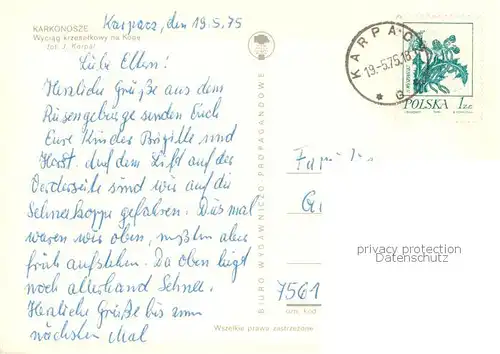 Karpacz, den 19.5.75
KARKONOSZE
Wyciąg krzesełkowy na Kopę
fot. J. Korpal
Liebe Eltern!
Herzliche Grüße aus dem
Riesengebirge senden Euch
Eure Kinder Brigitte und
Horst. Auf dem Lift auf der
Vorderseite sind wir auf die
Schneekoppe gefahren. Dies mal
waren wir oben, mußten aber
früh aufstehen. Da oben liegt
noch allerhand Schnee.
Herzliche Grüße bis zum
nächsten Mal
BIURO WYDAWNICZO PROPAGANDOWE
Wszelkie prawa zastrzeżone
KARPACZ
19.-5.75.18
* G
POLSKA 1 ZŁ
Familie
7561
privacy protection
Datenschutz